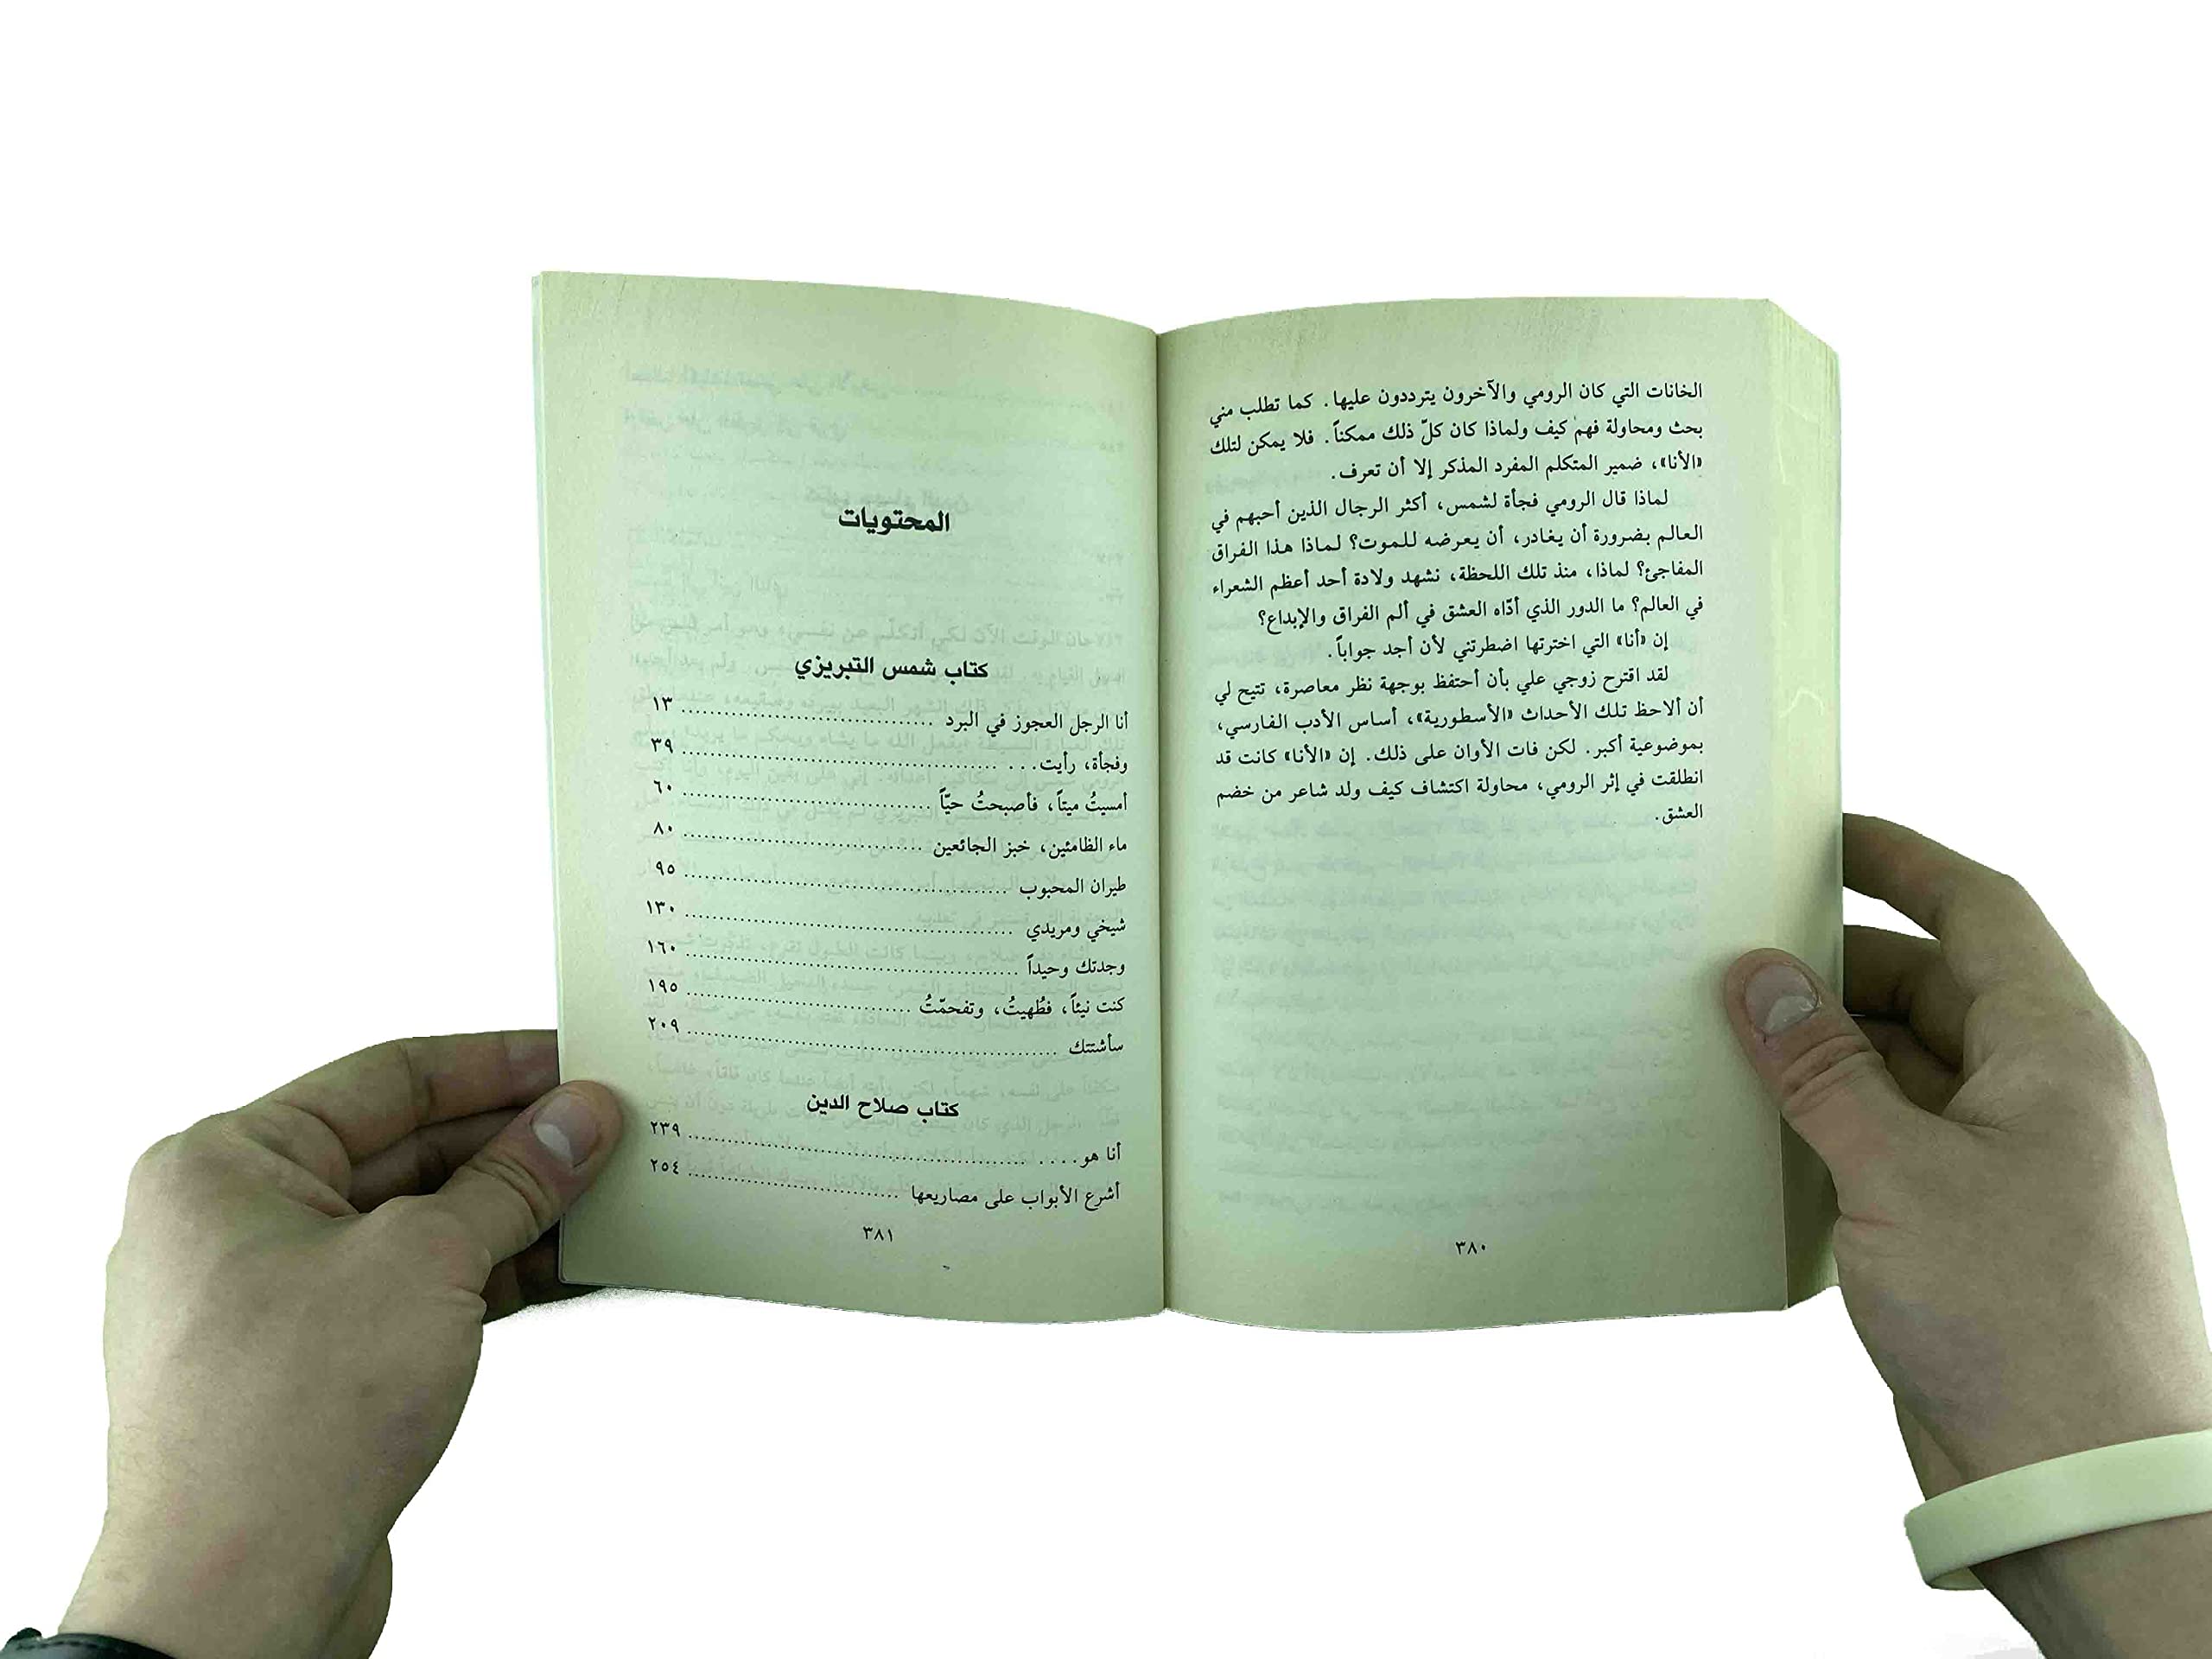 الخانات التي كان الرومي والآخرون يترددون عليها. كما تطلب مني
بحث ومحاولة فهم كيف ولماذا كان كلّ ذلك ممكناً. فلا يمكن لتلك
«الأنا»، ضمير المتكلم المفرد المذكر إلا أن تعرف.
لماذا قال الرومي فجأة لشمس، أكثر الرجال الذين أحبهم في
العالم بضرورة أن يغادر، أن يعرضه للموت؟ لماذا هذا الفراق
المفاجئ؟ لماذا، منذ تلك اللحظة، نشهد ولادة أحد أعظم الشعراء
في العالم؟ ما الدور الذي أدّاه العشق في ألم الفراق والإبداع؟
إن «أنا» التي اخترتها اضطرتني لأن أجد جواباً.
لقد اقترح زوجي علي بأن أحتفظ بوجهة نظر معاصرة، تتيح لي
أن ألاحظ تلك الأحداث «الأسطورية»، أساس الأدب الفارسي،
بموضوعية أكبر. لكن فات الأوان على ذلك. إن «الأنا» كانت قد
انطلقت في إثر الرومي، محاولة اكتشاف كيف ولد شاعر من خضم
العشق.
٣٨٠
المحتويات
كتاب شمس التبريزي
أنا الرجل العجوز في البرد ........ ١٣
وفجأة، رأيت... ........ ٣٩
أمسيتُ ميتاً، فأصبحتُ حيّاً ........ ٦٠
ماء الظامئين، خبز الجائعين ........ ٨٠
طيران المحبوب ........ ٩٥
شيخي ومريدي ........ ١٣٠
وجدتك وحيداً ........ ١٦٠
كنت نيئاً، فطُهيتُ، وتفحمّتُ ........ ١٩٥
سأشتتك ........ ٢٠٩
كتاب صلاح الدين
أنا هو.... ........ ٢٣٩
أشرع الأبواب على مصاريعها ........ ٢٥٤
٣٨١